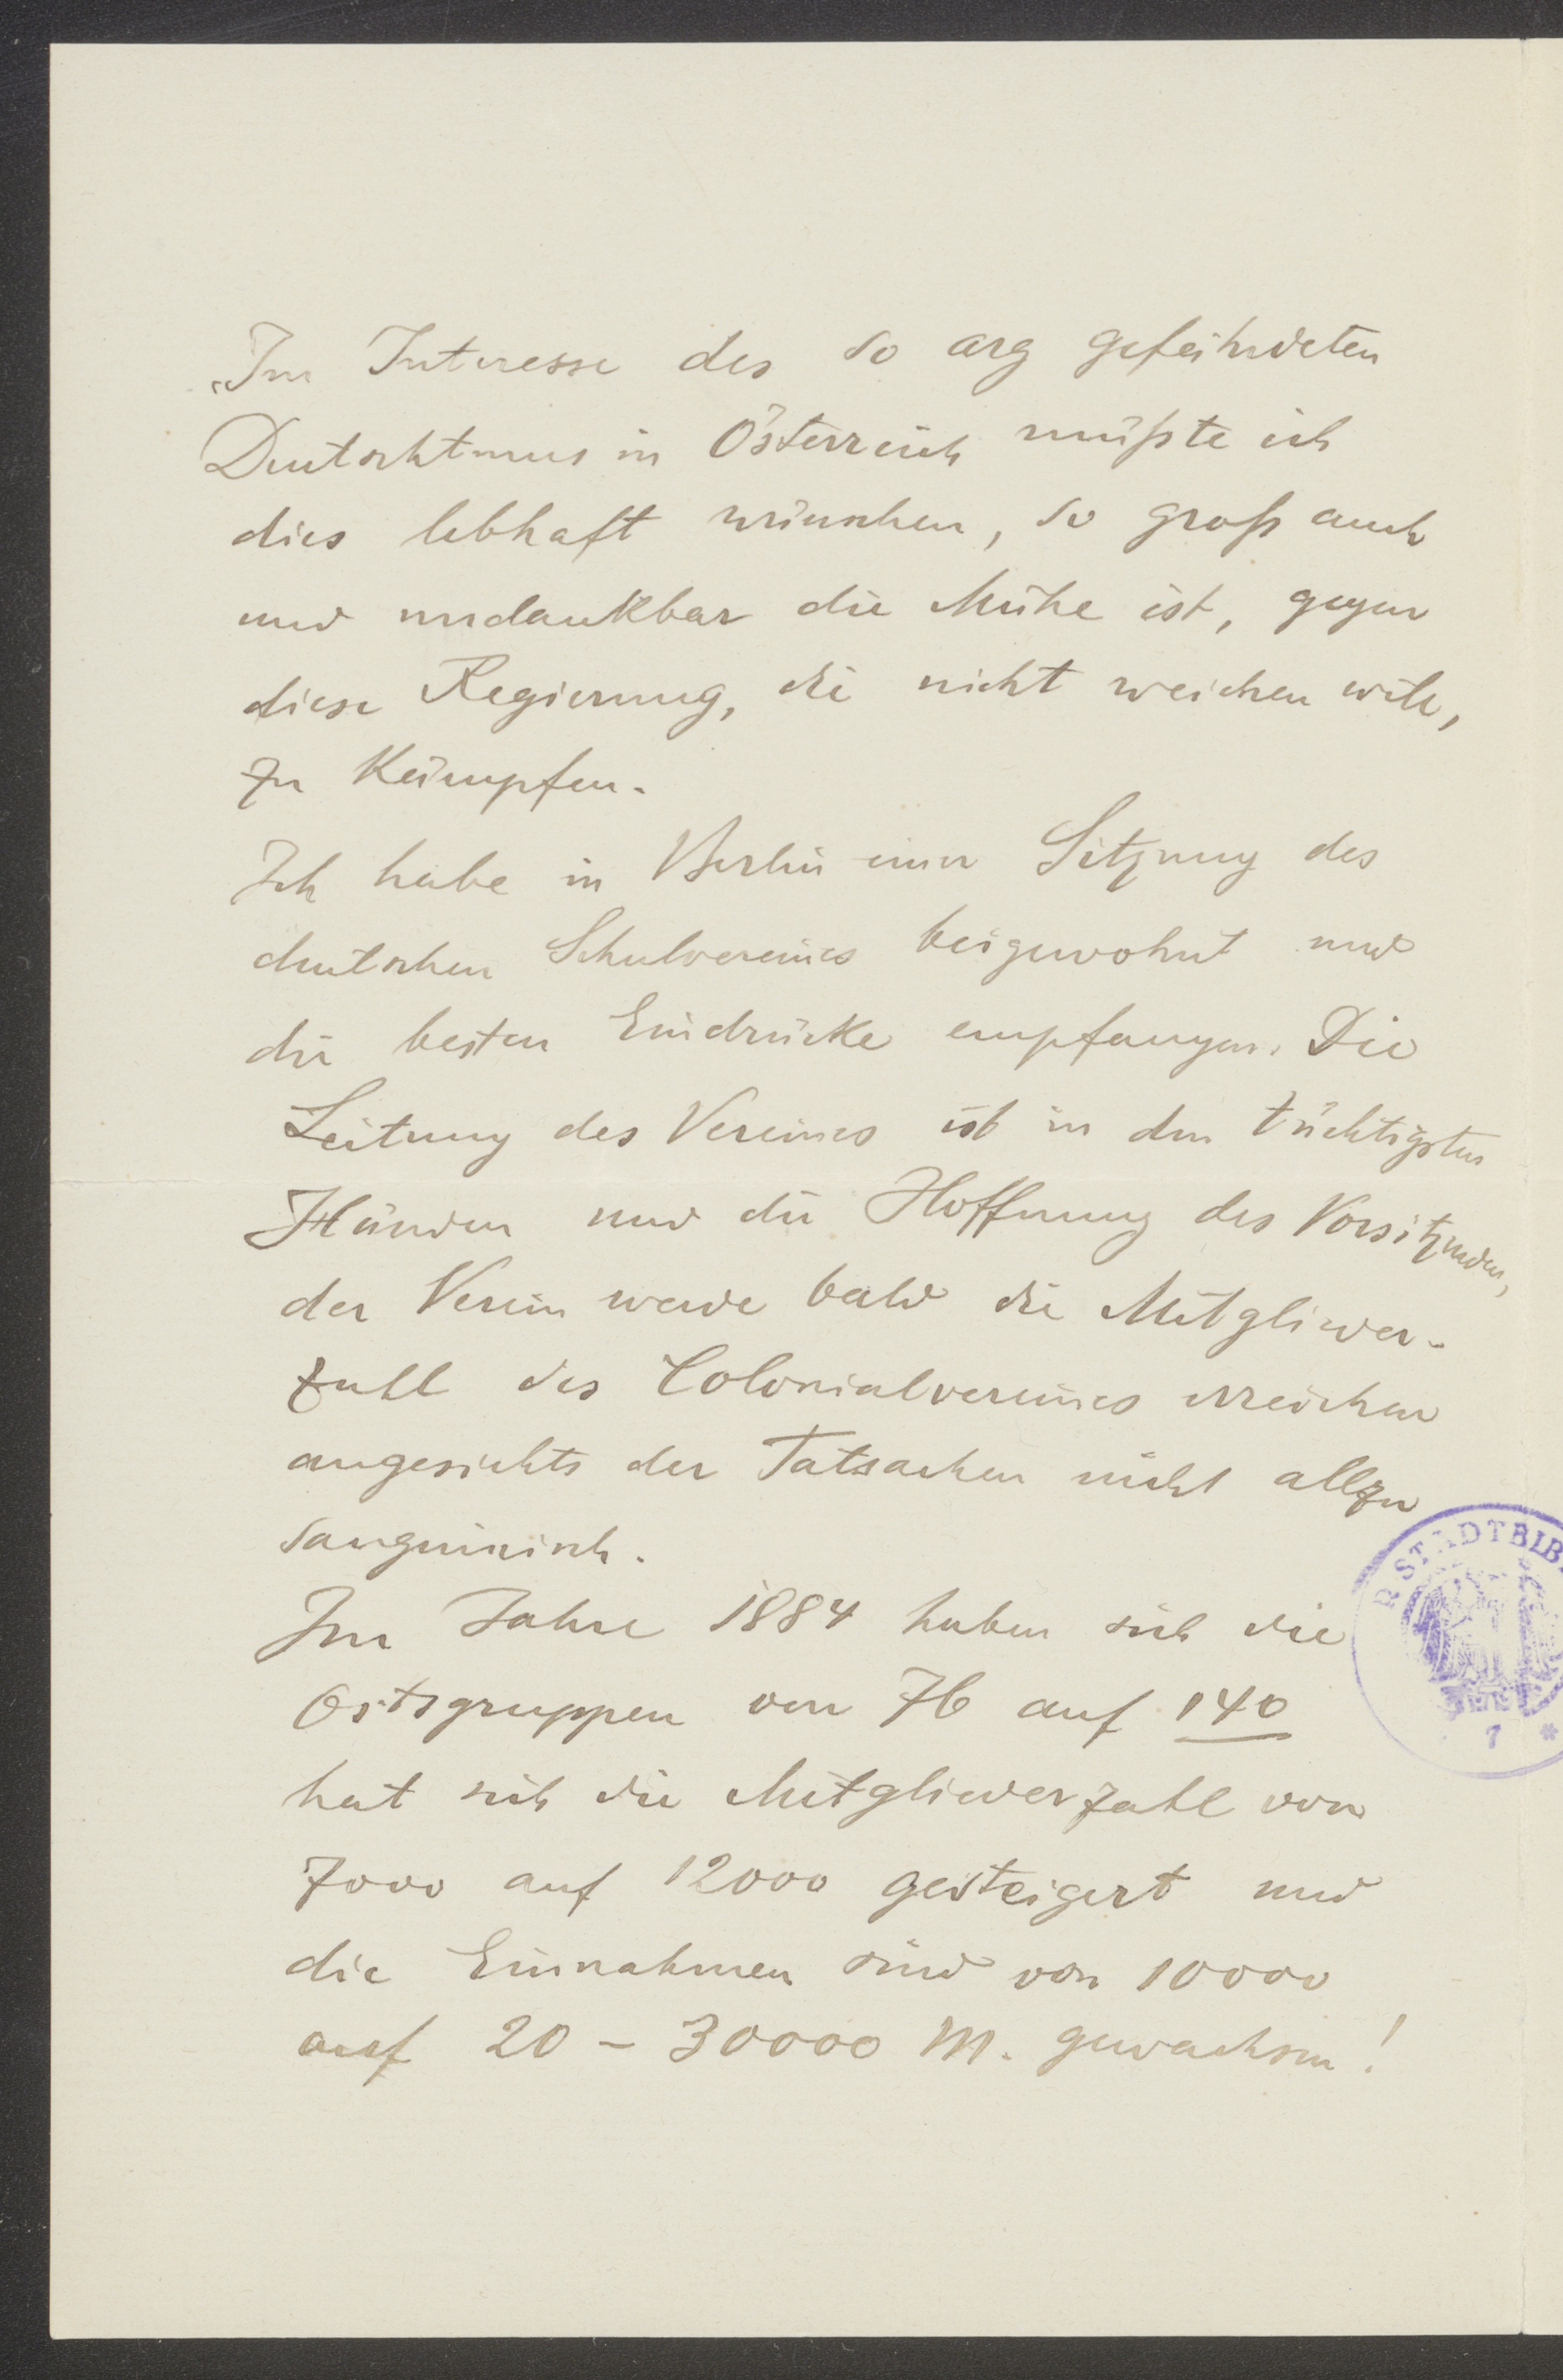 „Im Interesse des so arg gefährdeten
Deutschtums in Österreich müßte ich
dies lebhaft wünschen, so groß auch
und undankbar die Mühe ist, gegen
diese Regierung, die nicht weichen will,
zu kämpfen.
Ich habe in Berlin einer Sitzung des
deutschen Schulvereines beigewohnt und
die besten Eindrücke empfangen. Die
Leitung des Vereines ist in den tüchtigsten
Händen und die Hoffnung des Vorsitzenden,
der Verein werde bald die Mitglieder-
zahl des Colonialvereines erreichen
angesichts der Tatsachen nicht allzu
sanguinisch.
R STADTBIB
Im Jahre 1884 haben sich die
Ortsgruppen von 76 auf 140
7 *
hat sich die Mitgliederzahl von
7000 auf 12000 gesteigert und
die Einnahmen sind von 10000
auf 20 – 30000 M. gewachsen!